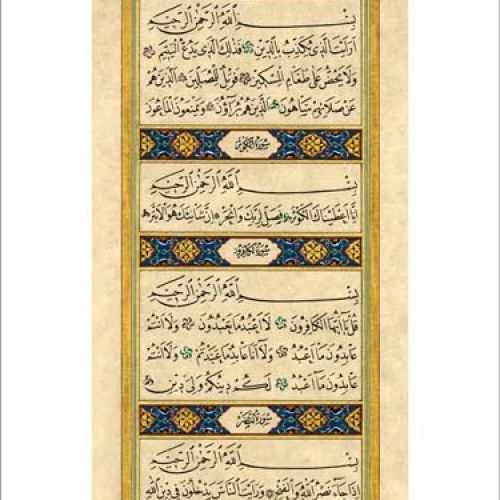 بسم الله الرحمن الرحيم
ارايت الذى يكذب بالدين فذلك الذى يدع اليتيم
ولا يحض على طعام المسكين فويل للمصلين الذين هم
عن صلاتهم ساهون الذين هم يراؤن ويمنعون الماعون
سورة الكوثر
بسم الله الرحمن الرحيم
انا اعطيناك الكوثر فصل لربك وانحر ان شانئك هو الابتر
سورة الكافرون
بسم الله الرحمن الرحيم
قل يا ايها الكافرون لا اعبد ما تعبدون ولا انتم
عابدون ما اعبد ولا انا عابد ما عبدتم ولا انتم
عابدون ما اعبد لكم دينكم ولى دين
سورة النصر
بسم الله الرحمن الرحيم
اذا جاء نصر الله والفتح ورايت الناس يدخلون فى دين الله